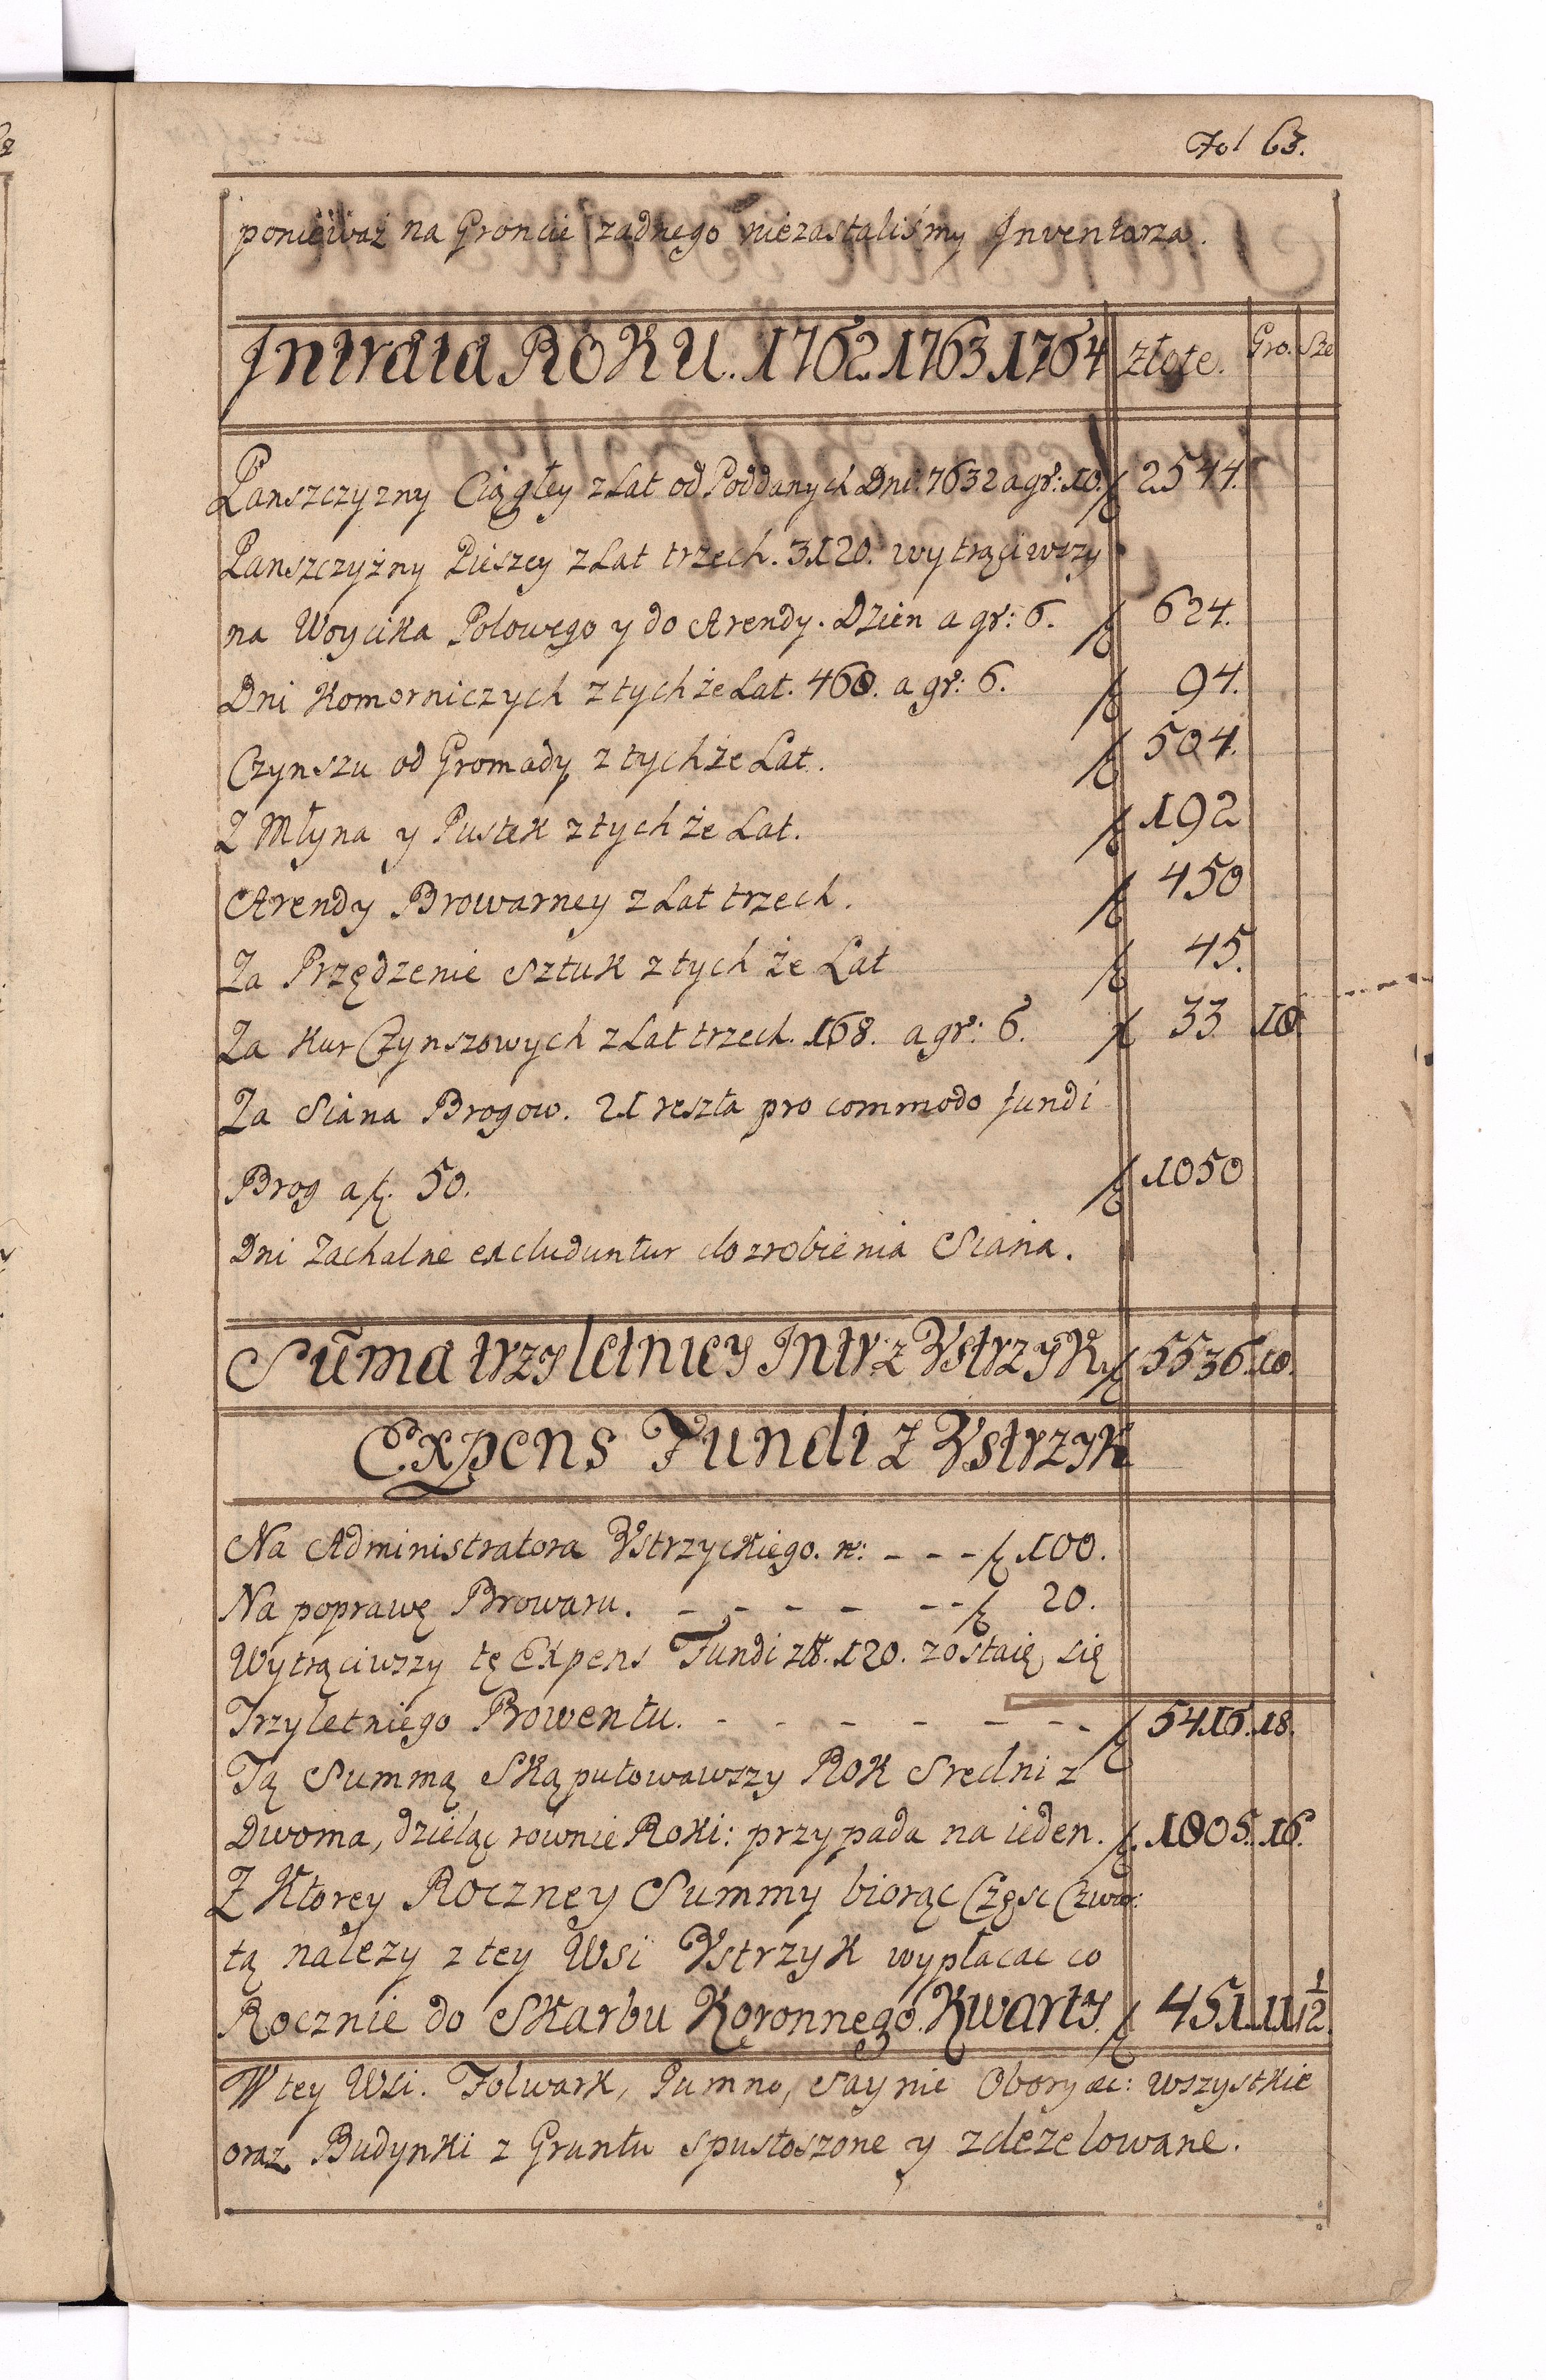 Fol 63.
ponieważ na Groncie żadnego niezastaliśmy Inventarza.
Intrata ROKU. 1762. 1763. 1764 złote. Gro. Sze
Panszczyzny Ciągłey z Lat od Poddanych Dni: 7632 a gr: 10. 2544.
Panszczyżny Pieszey z Lat trzech. 3120. wytrąciwszy
na Woycika Polowego y do Arendy. Dzien a gr: 6. 624.
Dni Komorniczych z tychże Lat. 460. a gr: 6. 94.
Czynszu od Gromady z tychże Lat. 504.
Z Młyna y Pustek z tychże Lat. 192
Arendy Browarney z Lat trzech. 450
Za Przędzenie Sztuk z tych że Lat 45.
Za Kur Czynszowych z Lat trzech. 168. a gr: 6. 33 18
Za Siana Brogow. 21 reszta pro commodo fundi
Brog a ƶ. 50. 1050
Dni Zachalne excluduntur do zrobienia Siana.
Sum̃a trzyletniey Intr: z Vstrzyk 5536. 18.
Expens Fundi z Vstrzyk
Na Administratora Vstrzyckiego. n: - - - 100.
Na poprawę Browaru. - - - - - - 20.
Wytrąciwszy tę Expens Fundi zł. 120. zostaię się
Trzyletniego Prowentu. - - - - - - - - 5416. 18.
Tą Summą Skąputowawszy Rok Sredni z
Dwoma, dzieląc rownie Roki: przypada na ieden. 1805. 16.
Z Ktorey Roczney Summy biorąc Częsc Czwar:
tą nalezy z tey Wsi Vstrzyk wypłacac co
Rocznie do Skarbu Koronnego. Kwarty. 451. 11 1/2.
W tey Wsi. Folwark, Gumno, Saynie Obory &c: wszystkie
oraz Budynki z Gruntu spustoszone y zdezelowane.